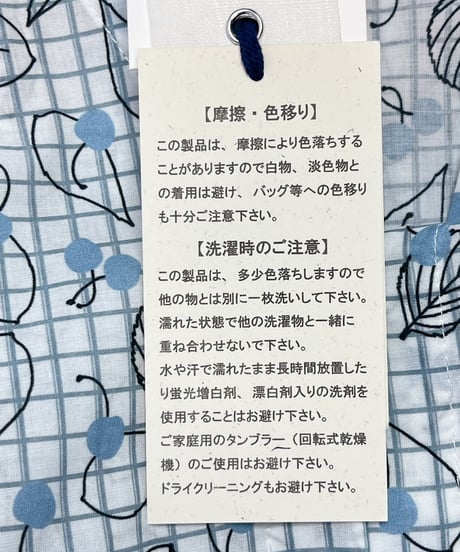 【摩擦・色移り】
この製品は、摩擦により色落ちする
ことがありますので白物、淡色物と
の着用は避け、バッグ等への色移り
も十分ご注意下さい。
【洗濯時のご注意】
この製品は、多少色落ちしますので
他の物とは別に一枚洗いして下さい。
濡れた状態で他の洗濯物と一緒に
重ね合わせないで下さい。
水や汗で濡れたまま長時間放置した
り蛍光増白剤、漂白剤入りの洗剤を
使用することはお避け下さい。
ご家庭用のタンブラー(回転式乾燥
機)のご使用はお避け下さい。
ドライクリーニングもお避け下さい。